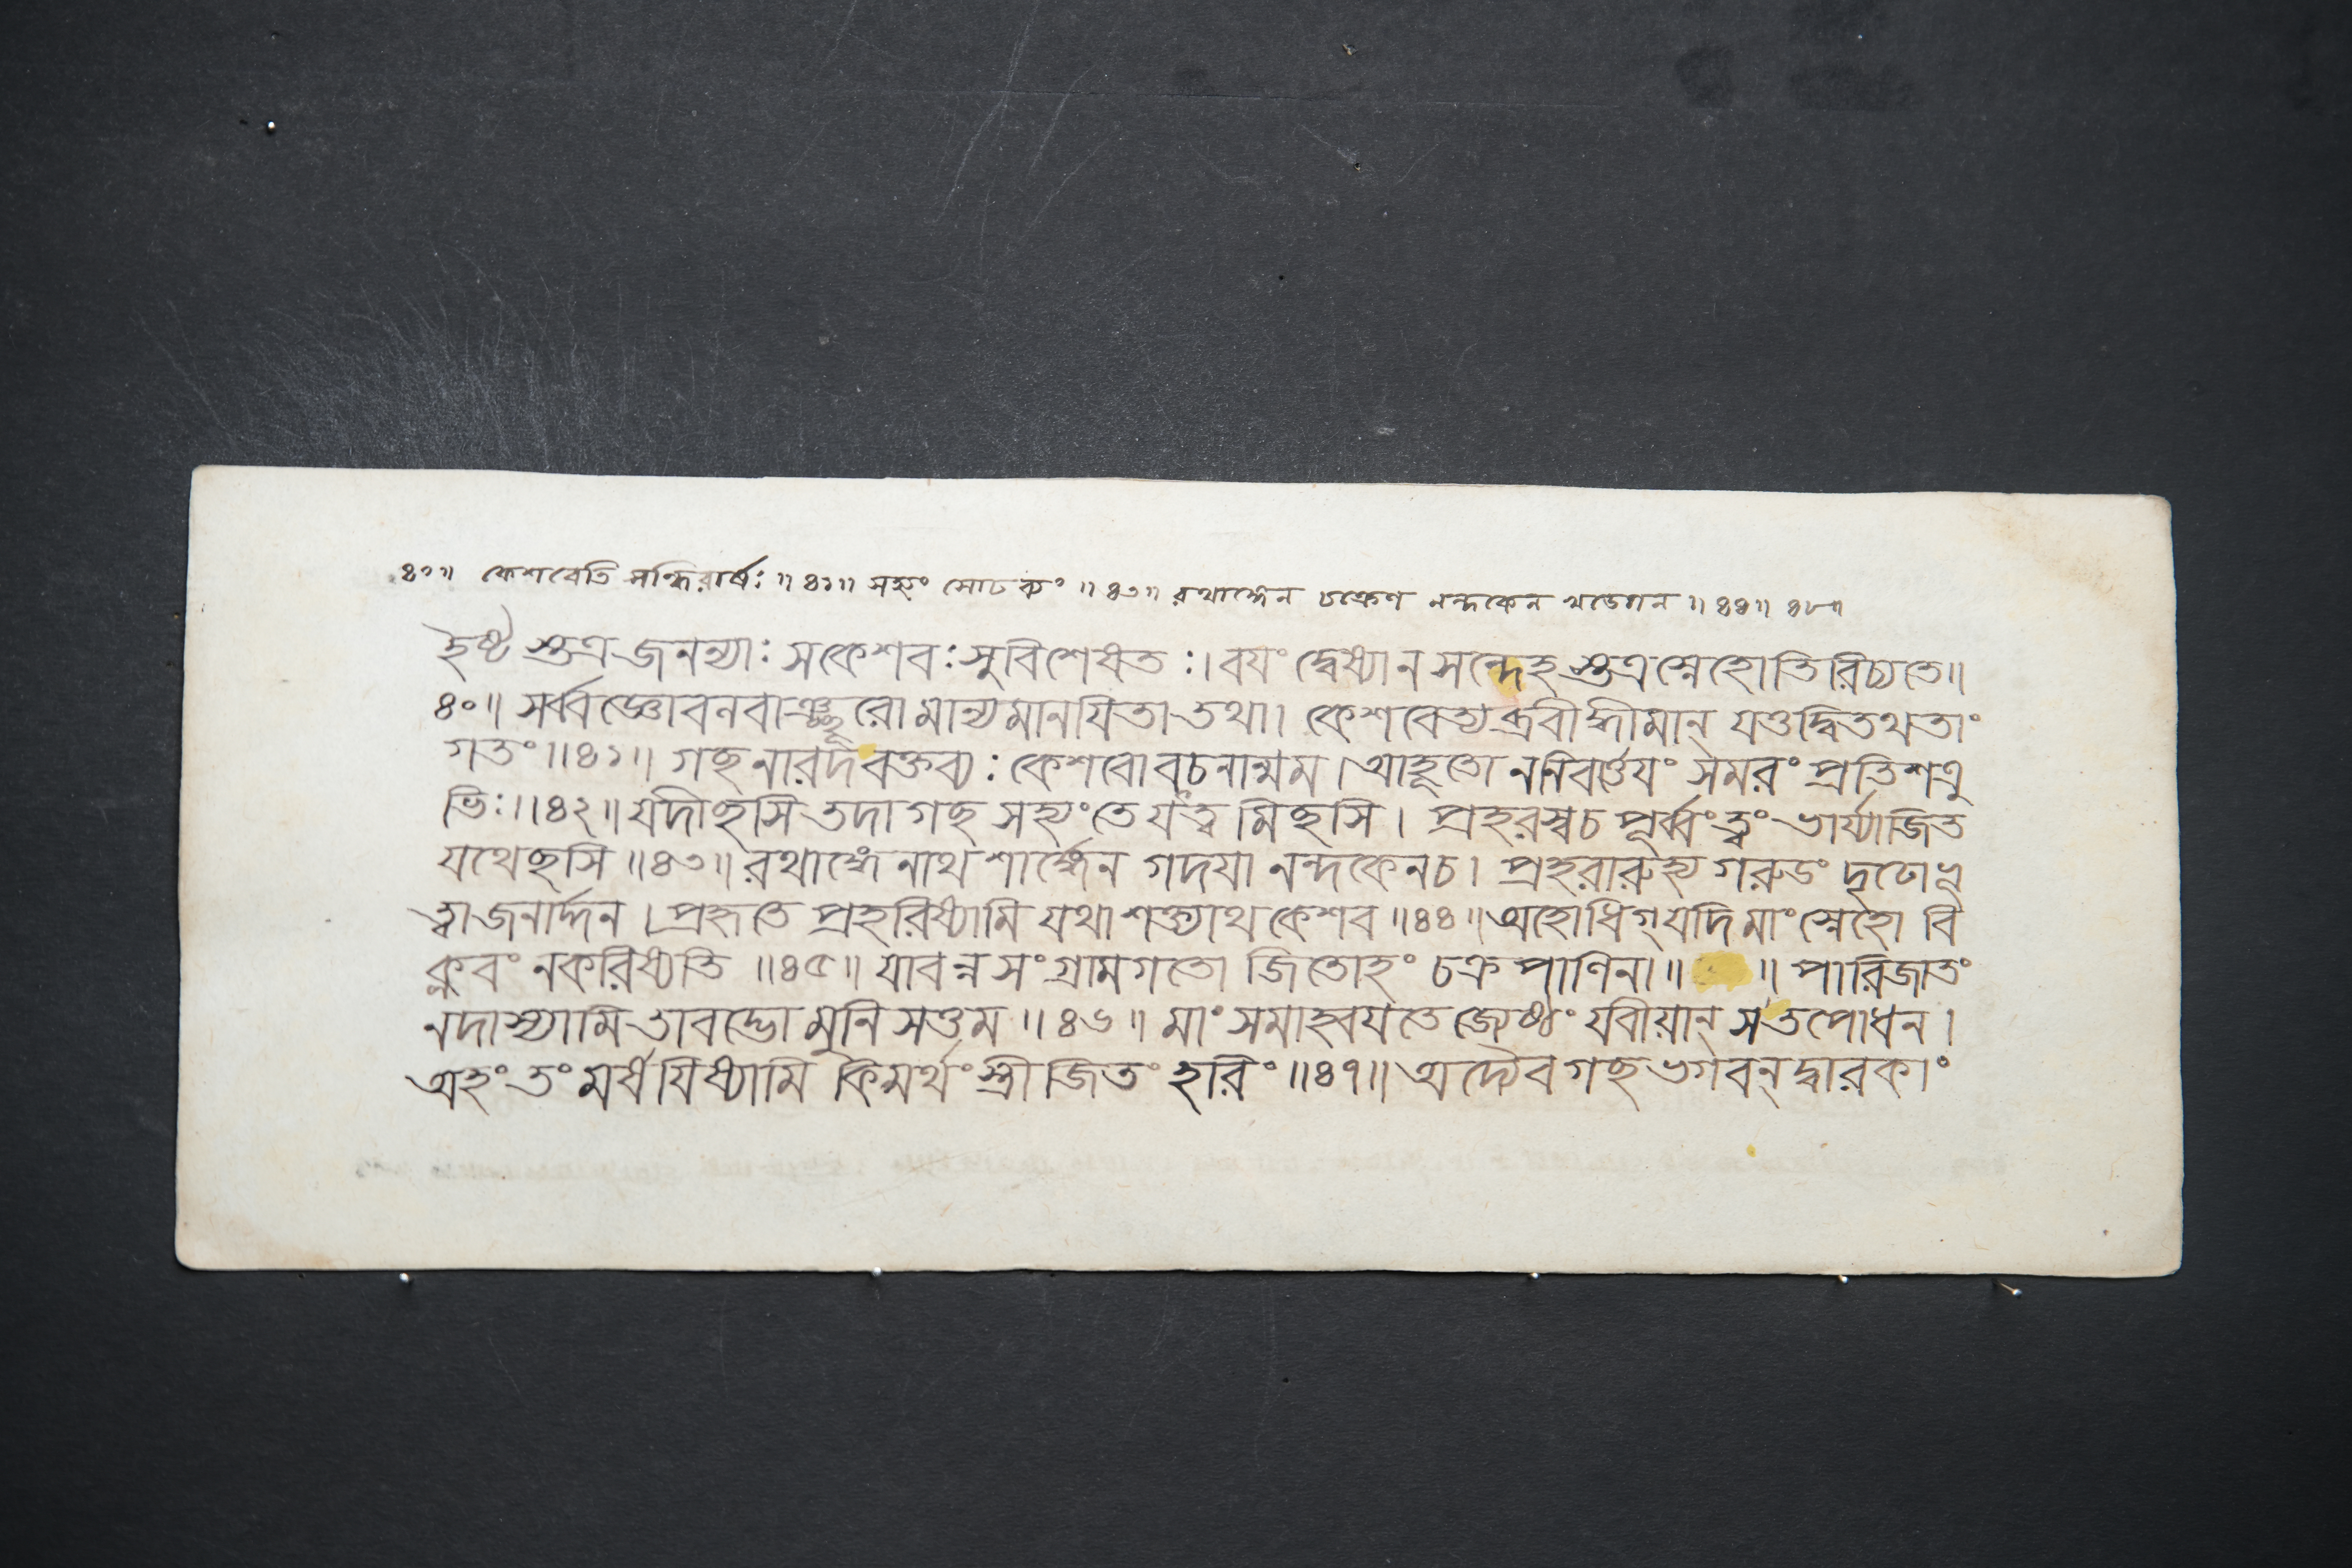 ৪০॥ কেশবেতি সন্ধিরার্ষঃ ॥৪১॥ সহ্যং সোঢব্যং ॥৪৩॥ রথাঙ্গেন চক্রেণ নন্দকেন খড্গেন ॥৪৪॥ ৪৮॥
শুত্র জনন্যাঃ সকেশবঃ সুবিশেষতঃ। বযং দ্বেষ্যা ন সন্দেহ শুত্র স্নেহোতিরিচ্যতে॥
৪০॥ সর্ব্বজ্ঞো বনবাঞ্ছূরো মান্যমানযিতা তথা। কেশবেত্যব্রবীদ্ধীমান্ যত্তদ্বিতথতাং
গতং ॥৪১॥ গচ্ছ নারদ বক্তব্যঃ কেশবো বচনান্মম। আহূতো ন নিবর্ত্তেযং সমরং প্রতি শত্রু
ভিঃ।॥৪২॥ যদীচ্ছসি তদাগচ্ছ সহ্যং তে যত্ত্বমিচ্ছসি। প্রহরস্ব চ পূর্ব্বং ত্বং ভার্য্যাজিত
যথেচ্ছসি ॥৪৩॥ রথাঙ্গেনাথ শার্ঙ্গেন গদযা নন্দকেন চ। প্রহরারুহ্য গরুডং দৃঢো ভূ
ত্বা জনার্দ্দন। প্রহৃতে প্রহরিষ্যামি যথাশক্ত্যাথ কেশব ॥৪৪॥ অহোধিগ্ যদি মাং স্নেহো বি
ক্লবং ন করিষ্যতি ॥৪৫॥ যাবন্ন সংগ্রামগতো জিতোহং চক্রপাণিনা॥ ॥ পারিজাতং
ন দাস্যামি তাবদ্ভো মুনিসত্তম ॥৪৬॥ মাং সমাহ্বযতে জ্যেষ্ঠং যবীয়ান্ স তপোধন।
অহং তং মর্ষযিষ্যামি কিমর্থং স্ত্রীজিতং হরিং ॥৪৭॥ অদ্যৈব গচ্ছ ভগবন্ দ্বারকাং